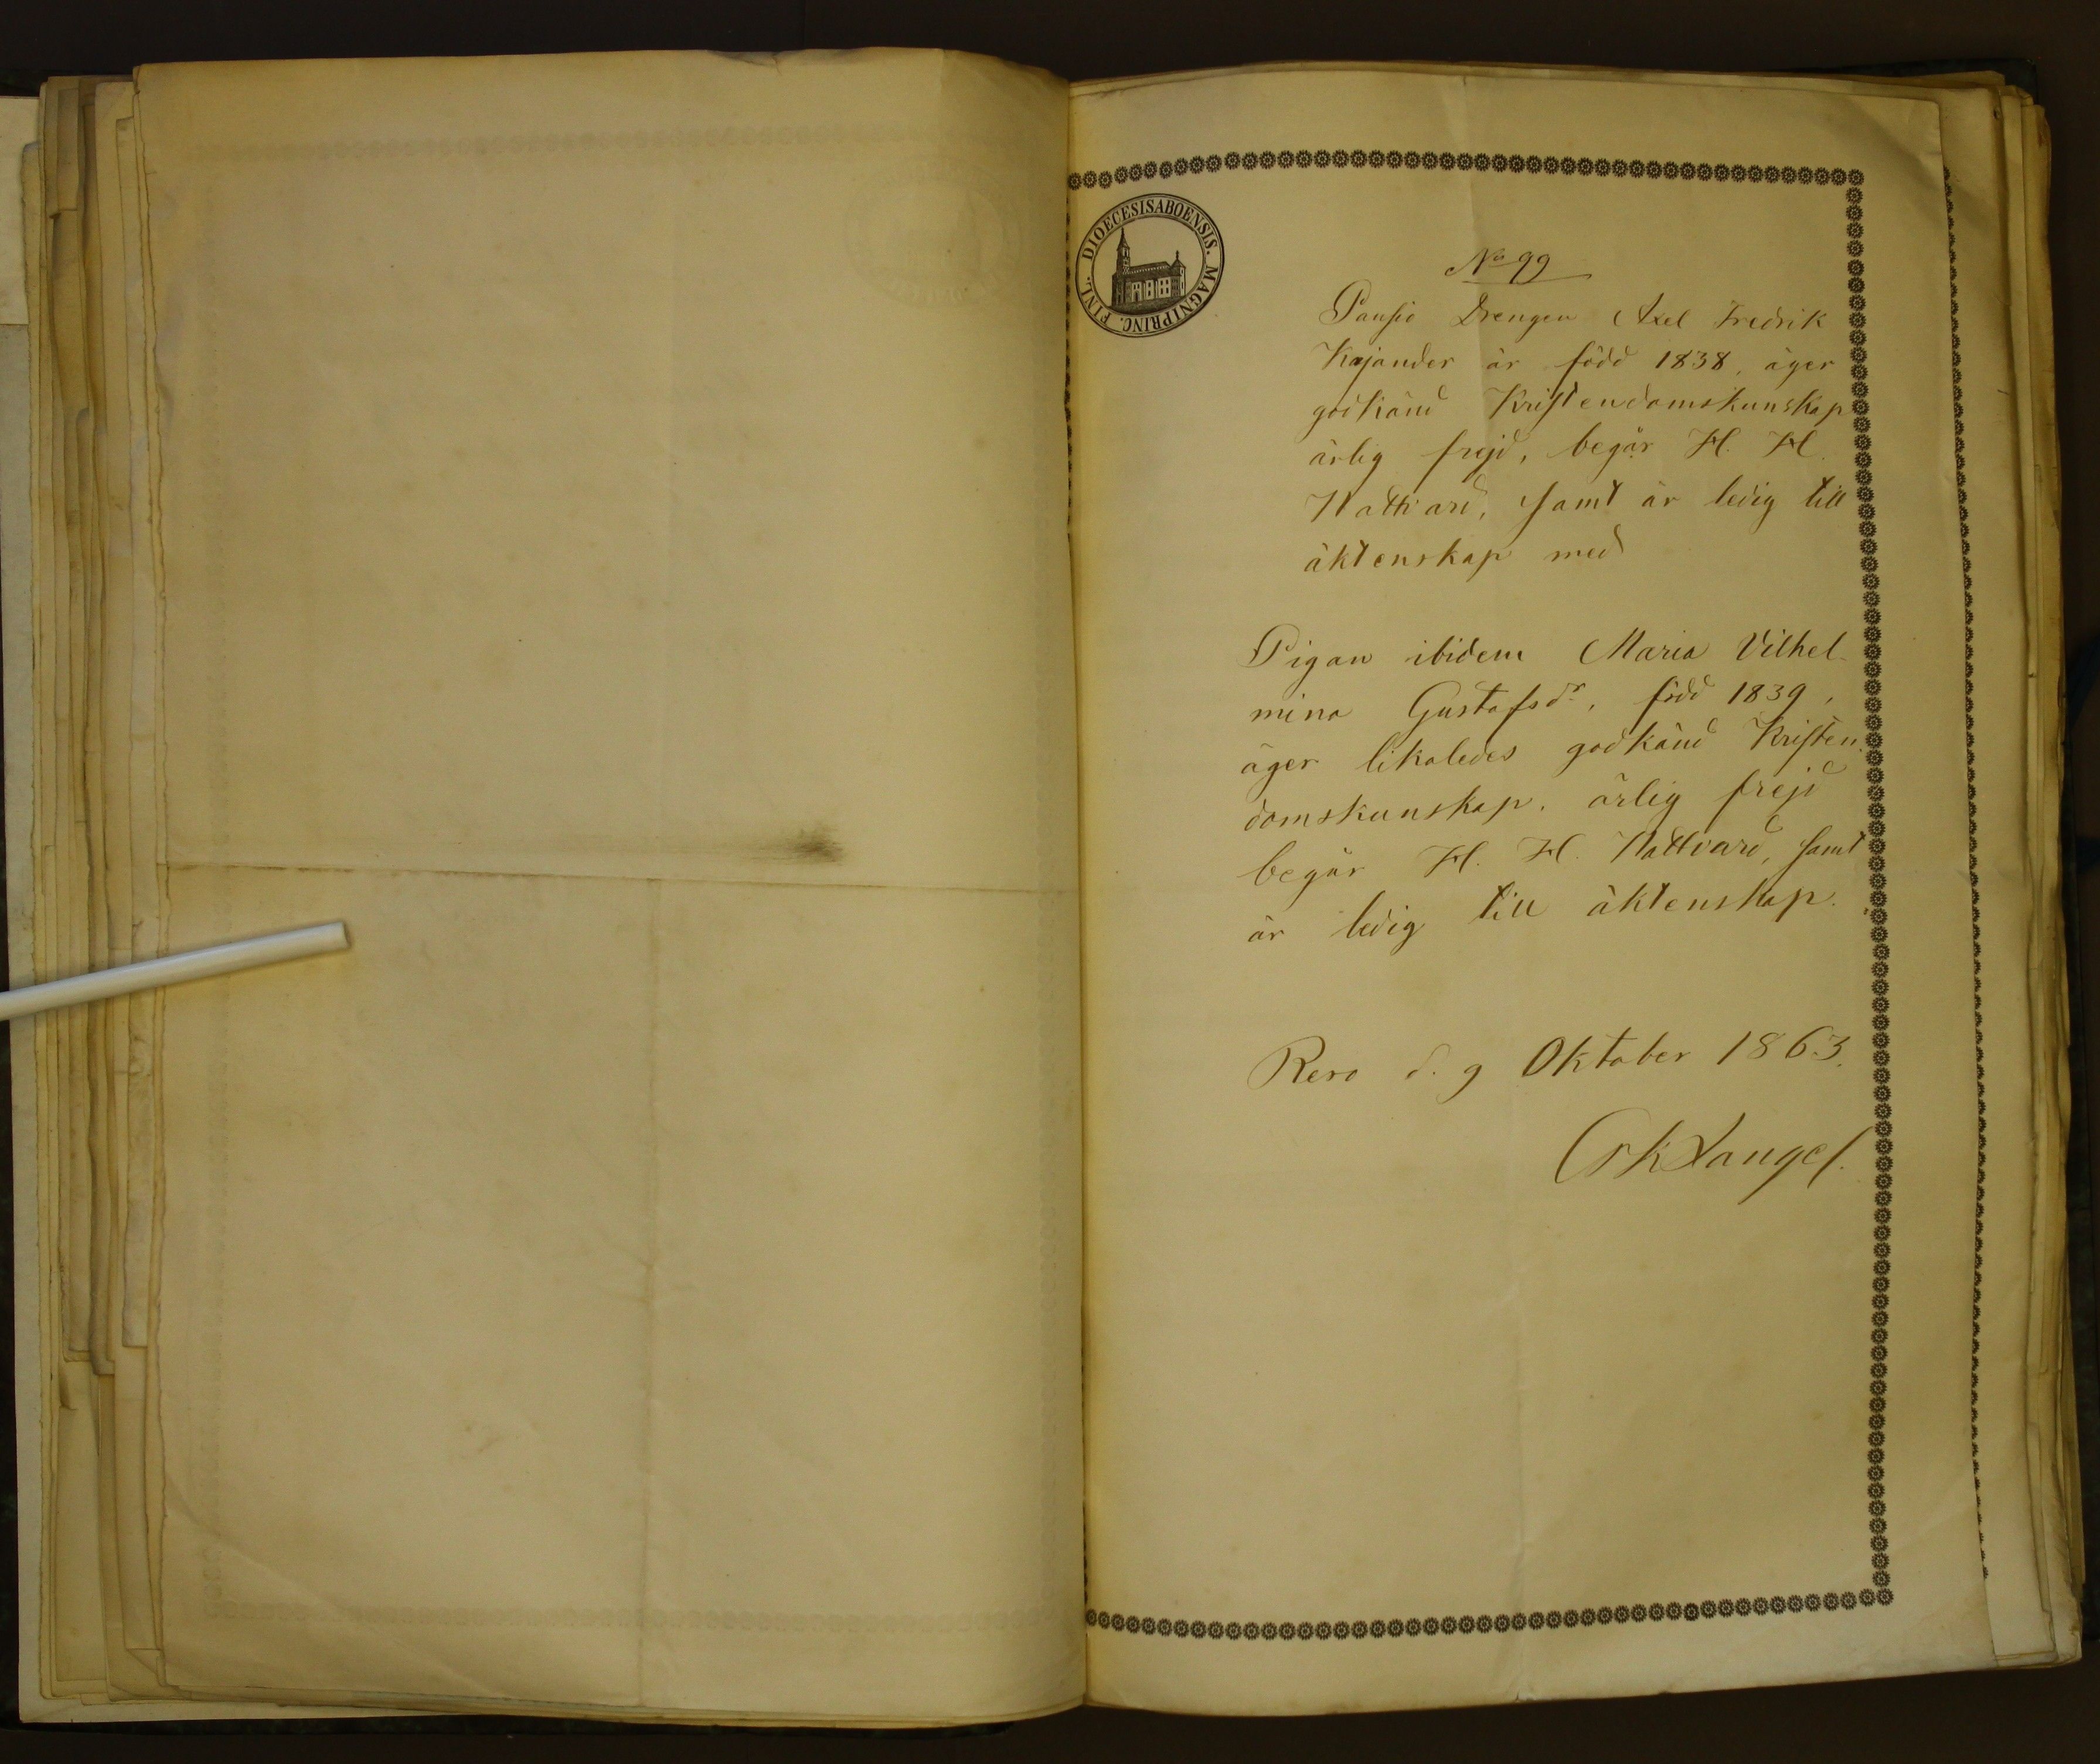 DIOECESISABOENSIS. MAGNIPRINC. FINL.
No 99
Pansio Drengen Axel Fredrik
Kajander är född 1838, äger
godkänd Kristendomskunskap
ärlig frejd, begår H. H.
Nattvard, samt är ledig till
äktenskap med
Pigan ibidem Maria Vilhel-
mina Gustafsdr, född 1839,
äger likaledes godkänd Kristen-
domskunskap, ärlig frejd
begår H. H. Nattvard, samt
är ledig till äktenskap.
Reso d. 9 Oktober 1863.